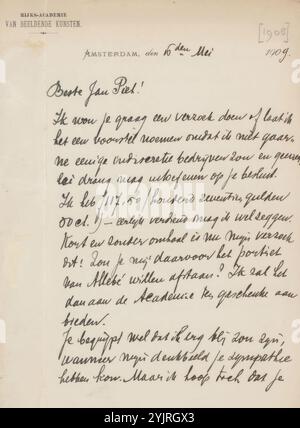 RIJKS-ACADEMIE
VAN BEELDENDE KUNSTEN.
[1908]
AMSTERDAM, den 16den Mei 1909.
Beste Jan Piet!
Ik wou je graag een verzoek doen of laat ik
het een voorstel noemen omdat ik niet gaar-
ne eenige indiscretie bedrijven zou en geener-
lei drang mag uitoefenen op je besluit.
Ik heb f 117.50 / honderd zeventien gulden
50 ct. !) – eerlijk verdiend mag ik wel zeggen.
Kort en zonder omhaal is nu mijn verzoek
dit: Zou je mij daarvoor het portret
van Allebé willen afstaan? Ik zal het
dan aan de Academie ten geschenke aan
bieden.
Je begrijpt wel dat ik erg blij zou zijn,
wanneer mijn denkbeeld je sympathie
hebben kon. Maar ik hoop toch dat je
alamy
Image ID: 2YJRGX3
www.alamy.com